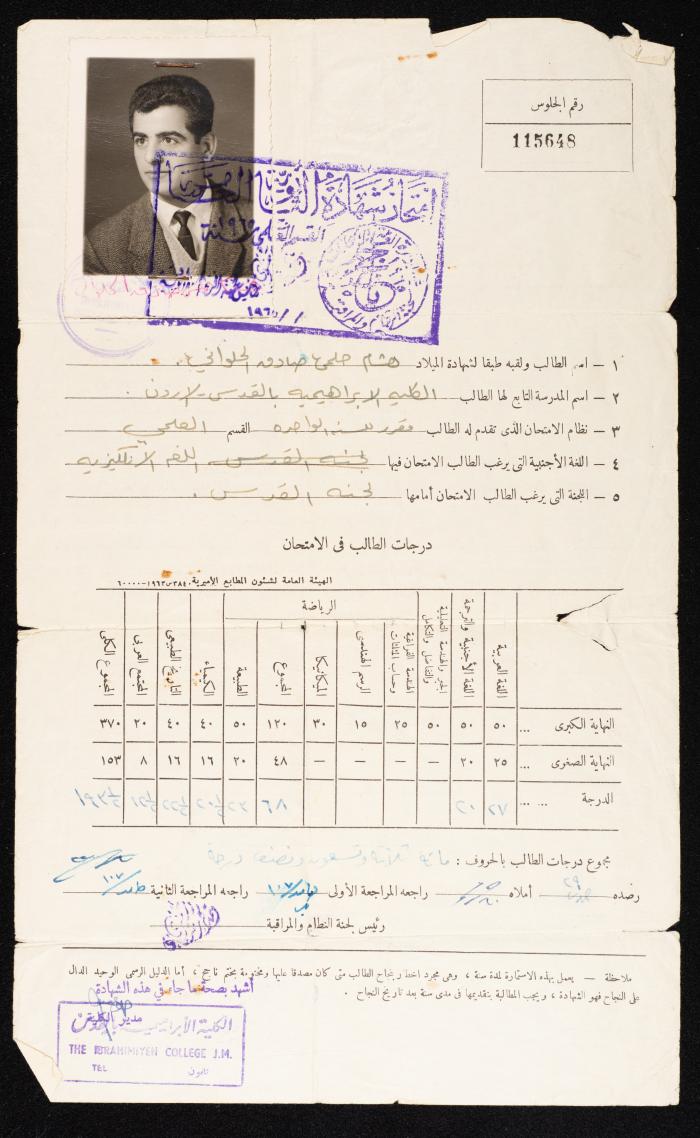 رقم الجلوس
115648
امتحان شهادة الثانوية
القسم العلمي سنة ١٩٦٥
١ - اسم الطالب ولقبه طبقا لشهادة الميلاد هشام حلمي صادق الحلواني
٢ - اسم المدرسة التابع لها الطالب الكلية الابراهيمية بالقدس - الاردن
٣ - نظام الامتحان الذى تقدم له الطالب مقرر السنة الواحدة القسم العلمي
٤ - اللغة الأجنبية التى يرغب الطالب الامتحان فيها لجنة القدس اللغة الانكليزية
٥ - اللجنة التى يرغب الطالب الامتحان أمامها لجنة القدس
درجات الطالب فى الامتحان
الهيئة العامة لشئون المطابع الأميرية
اللغة العربية اللغة الأجنبية والترجمة الرياضة الجبر والهندسة التحليلية والتفاضل والتكامل الهندسة الفراغية وحساب المثلثات الرسم الهندسى الميكانيكا المجموع الطبيعة الكيمياء التاريخ الطبيعى المجتمع العربى المجموع الكلى
النهاية الكبرى ... ٥٠ ٥٠ ٥٠ ٢٥ ١٥ ٣٠ ١٢٠ ٥٠ ٤٠ ٤٠ ٢٠ ٣٧٠
النهاية الصغرى ... ٢٥ ٢٠ — — — — ٤٨ ٢٠ ١٦ ١٦ ٨ ١٥٣
الدرجة ... ... ٢٧ ٢٠ ٦٨
مجموع درجات الطالب بالحروف : مائة ثلاثة وتسعون ونصف درجة
رصده أملاه راجعه المراجعة الأولى راجعه المراجعة الثانية
رئيس لجنة النظام والمراقبة
ملاحظة — يعمل بهذه الاستمارة لمدة سنة ، وهى مجرد اخطار بنجاح الطالب متى كان مصدقا عليها ومختومة بختم ناجح ، أما الدليل الرسمى الوحيد الدال
على النجاح فهو الشهادة ، ويجب المطالبة بتقديمها فى مدى سنة بعد تاريخ النجاح .
أشهد بصحة ما جاء في هذه الشهادة
مدير الكلية
الكلية الابراهيمية بالقدس
THE IBRAHIMIYEH COLLEGE J.M.
TEL تلفون